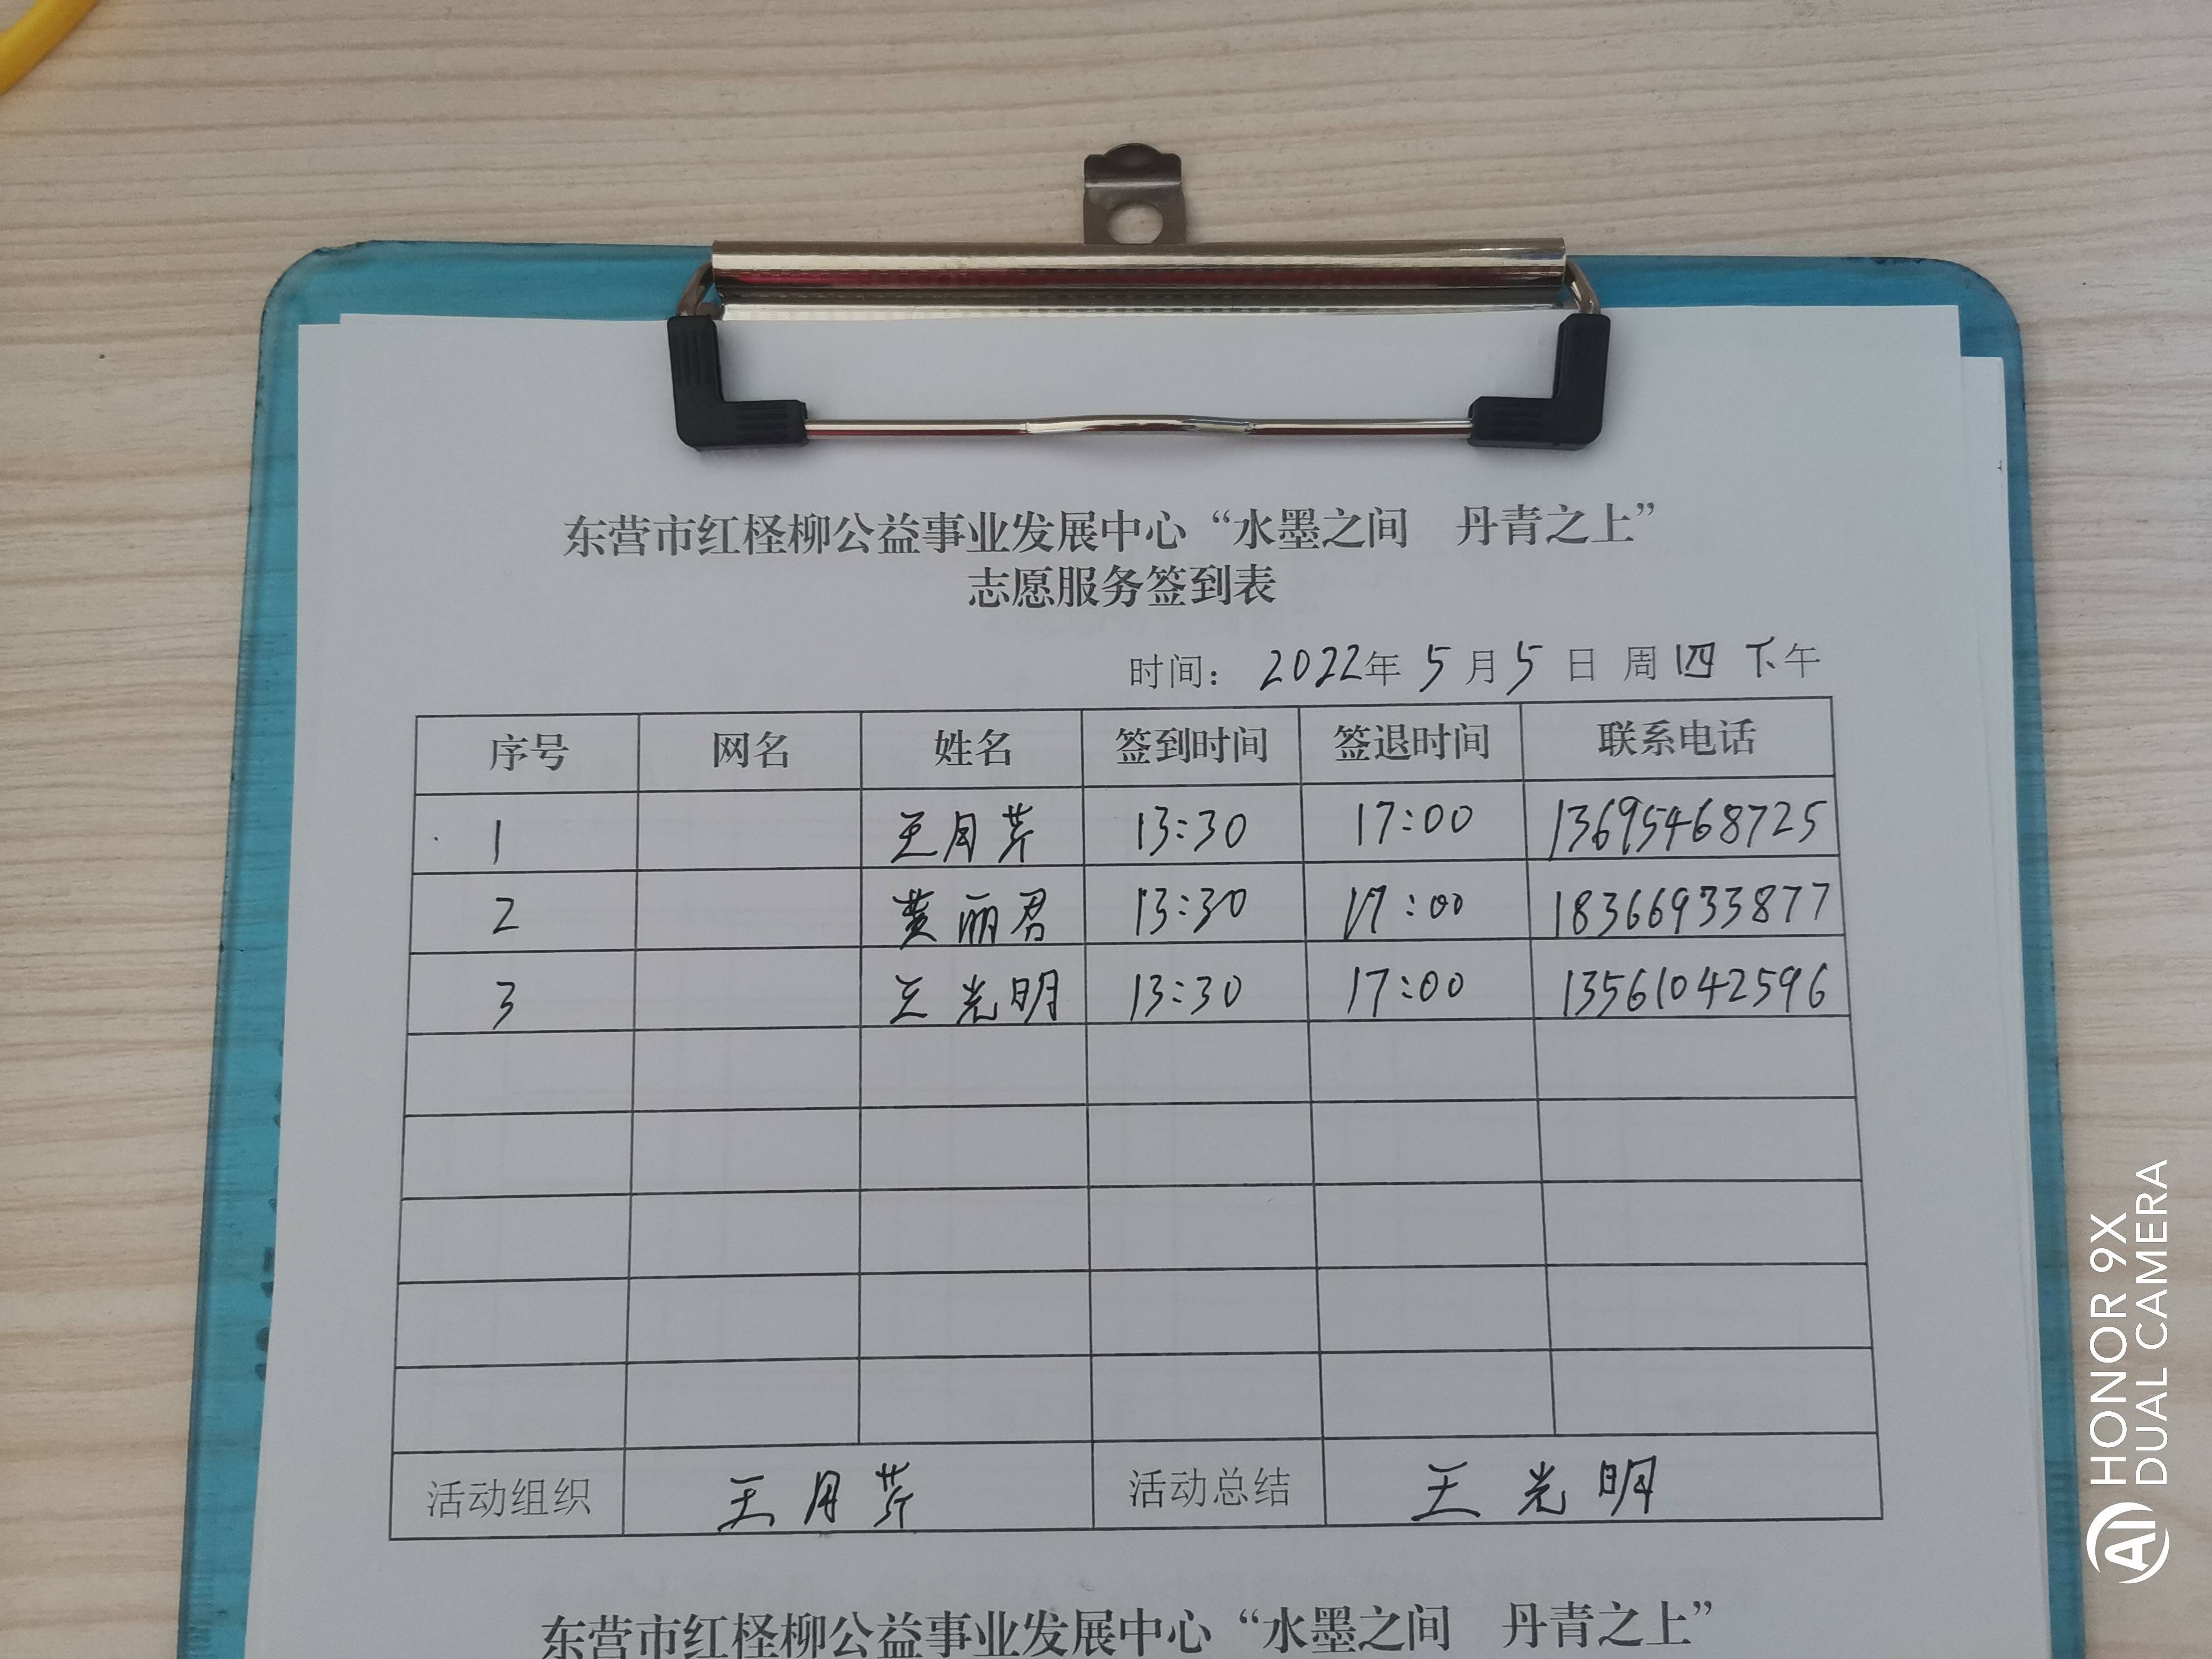 东营市红柽柳公益事业发展中心“水墨之间 丹青之上”
志愿服务签到表
时间： 2022年 5 月 5 日 周四 下午
序号 网名 姓名 签到时间 签退时间 联系电话
1 王月芹 13:30 17:00 13695468725
2 黄丽君 13:30 17:00 18366933877
3 王光明 13:30 17:00 13561042596
活动组织 王月芹 活动总结 王光明
东营市红柽柳公益事业发展中心“水墨之间 丹青之上”
AI HONOR 9X
DUAL CAMERA